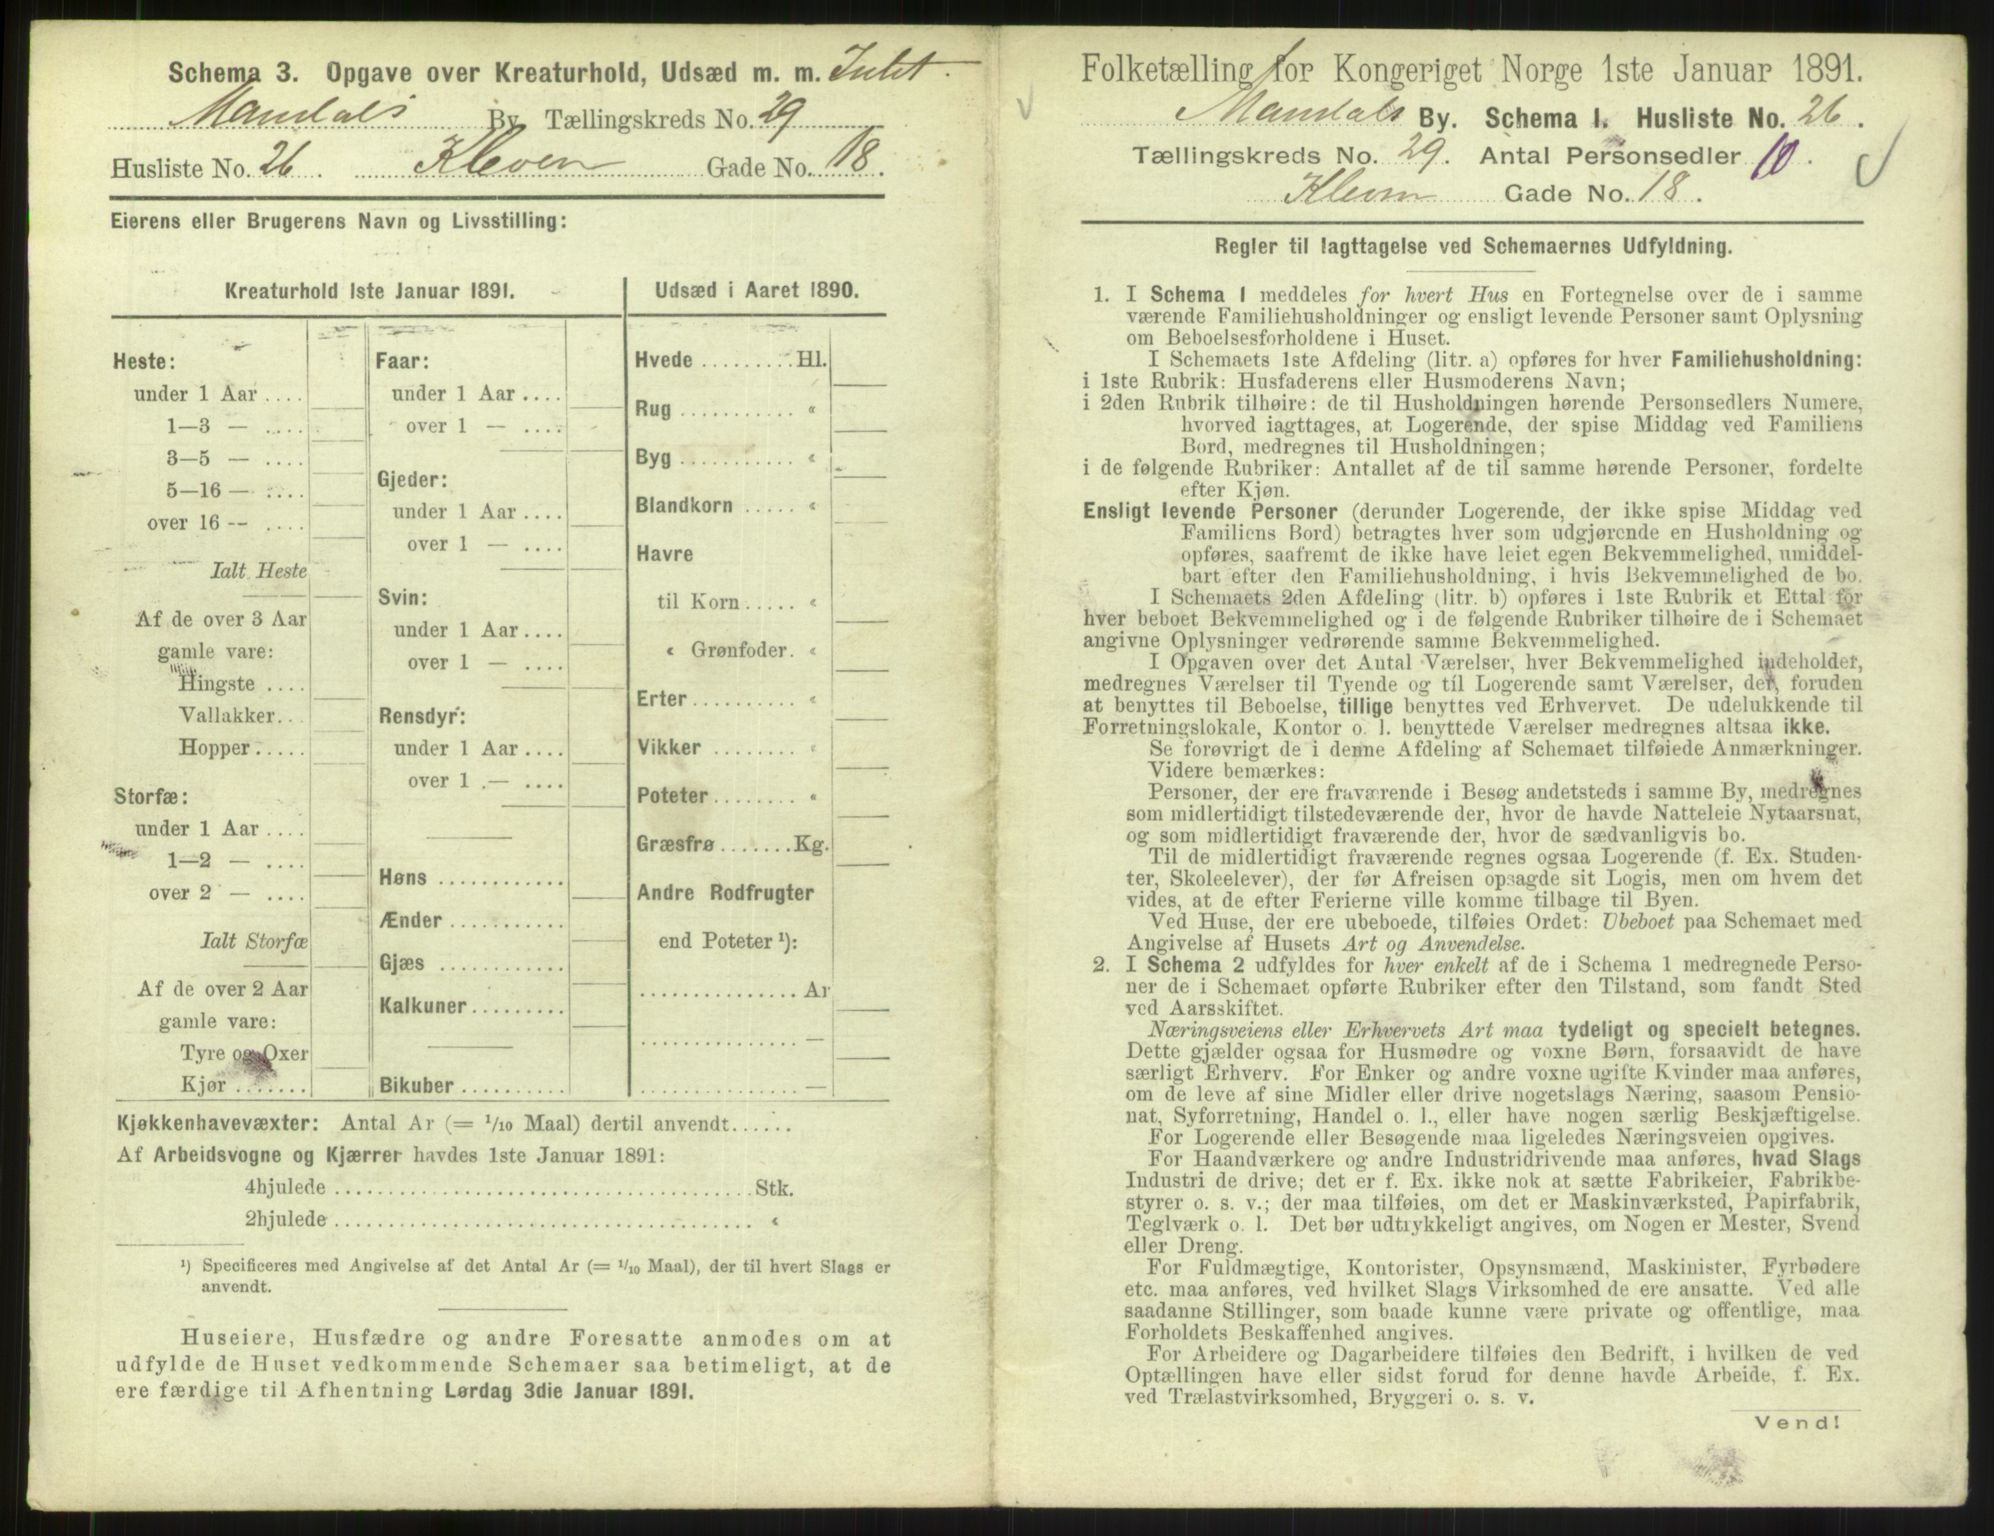 Schema 3. Opgave over Kreaturhold, Udsæd m. m. Intet.
Mandals By Tællingskreds No. 29
Husliste No. 26. Kleven Gade No. 18.
Eierens eller Brugerens Navn og Livsstilling:
Kreaturhold 1ste Januar 1891.
Heste:
under 1 Aar ....
1—3 — ....
3—5 — ....
5—16 — ....
over 16 -- ....
Ialt Heste
Af de over 3 Aar
gamle vare:
Hingste ....
Vallakker...
Hopper.....
Storfæ:
under 1 Aar ....
1—2 — ....
over 2 — ....
Ialt Storfæ
Af de over 2 Aar
gamle vare:
Tyre og Oxer
Kjør .......
Faar:
under 1 Aar ....
over 1 — ....
Gjeder:
under 1 Aar ....
over 1 — ....
Svin:
under 1 Aar ....
over 1 — ....
Rensdyr:
under 1 Aar ....
over 1 — ....
Høns ............
Ænder ...........
Gjæs ............
Kalkuner.........
Bikuber ..........
Udsæd i Aaret 1890.
Hvede .........Hl.
Rug ........... «
Byg ........... «
Blandkorn ..... «
Havre
til Korn..... «
« Grønfoder. «
Erter.......... «
Vikker ....... «
Poteter........ «
Græsfrø .......Kg.
Andre Rodfrugter
end Poteter ¹):
............... Ar
............... —
............... —
Kjøkkenhavevæxter: Antal Ar (= 1/10 Maal) dertil anvendt......
Af Arbeidsvogne og Kjærrer havdes 1ste Januar 1891:
4hjulede ........................................ Stk.
2hjulede ........................................ «
¹) Specificeres med Angivelse af det Antal Ar (= 1/10 Maal), der til hvert Slags er
anvendt.
Huseiere, Husfædre og andre Foresatte anmodes om at
udfylde de Huset vedkommende Schemaer saa betimeligt, at de
ere færdige til Afhentning Lørdag 3die Januar 1891.
Folketælling for Kongeriget Norge 1ste Januar 1891.
Mandals By. Schema I. Husliste No. 26.
Tællingskreds No. 29. Antal Personsedler 10.
Kleven Gade No. 18.
Regler til Iagttagelse ved Schemaernes Udfyldning.
1. I Schema 1 meddeles for hvert Hus en Fortegnelse over de i samme
værende Familiehusholdninger og ensligt levende Personer samt Oplysning
om Beboelsesforholdene i Huset.
I Schemaets 1ste Afdeling (litr. a) opføres for hver Familiehusholdning:
i 1ste Rubrik: Husfaderens eller Husmoderens Navn;
i 2den Rubrik tilhøire: de til Husholdningen hørende Personsedlers Numere,
hvorved iagttages, at Logerende, der spise Middag ved Familiens
Bord, medregnes til Husholdningen;
i de følgende Rubriker: Antallet af de til samme hørende Personer, fordelte
efter Kjøn.
Ensligt levende Personer (derunder Logerende, der ikke spise Middag ved
Familiens Bord) betragtes hver som udgjørende en Husholdning og
opføres, saafremt de ikke have leiet egen Bekvemmelighed, umiddel-
bart efter den Familiehusholdning, i hvis Bekvemmelighed de bo.
I Schemaets 2den Afdeling (litr. b) opføres i 1ste Rubrik et Ettal for
hver beboet Bekvemmelighed og i de følgende Rubriker tilhøire de i Schemaet
angivne Oplysninger vedrørende samme Bekvemmelighed.
I Opgaven over det Antal Værelser, hver Bekvemmelighed indeholder,
medregnes Værelser til Tyende og til Logerende samt Værelser, der, foruden
at benyttes til Beboelse, tillige benyttes ved Erhvervet. De udelukkende til
Forretningslokale, Kontor o. l. benyttede Værelser medregnes altsaa ikke.
Se forøvrigt de i denne Afdeling af Schemaet tilføiede Anmærkninger.
Videre bemærkes:
Personer, der ere fraværende i Besøg andetsteds i samme By, medregnes
som midlertidigt tilstedeværende der, hvor de havde Natteleie Nytaarsnat,
og som midlertidigt fraværende der, hvor de sædvanligvis bo.
Til de midlertidigt fraværende regnes ogsaa Logerende (f. Ex. Studen-
ter, Skoleelever), der før Afreisen opsagde sit Logis, men om hvem det
vides, at de efter Ferierne ville komme tilbage til Byen.
Ved Huse, der ere ubeboede, tilføies Ordet: Ubeboet paa Schemaet med
Angivelse af Husets Art og Anvendelse.
2. I Schema 2 udfyldes for hver enkelt af de i Schema 1 medregnede Perso-
ner de i Schemaet opførte Rubriker efter den Tilstand, som fandt Sted
ved Aarsskiftet.
Næringsveiens eller Erhvervets Art maa tydeligt og specielt betegnes.
Dette gjælder ogsaa for Husmødre og voxne Børn, forsaavidt de have
særligt Erhverv. For Enker og andre voxne ugifte Kvinder maa anføres,
om de leve af sine Midler eller drive nogetslags Næring, saasom Pensio-
nat, Syforretning, Handel o. l., eller have nogen særlig Beskjæftigelse.
For Logerende eller Besøgende maa ligeledes Næringsveien opgives.
For Haandværkere og andre Industridrivende maa anføres, hvad Slags
Industri de drive; det er f. Ex. ikke nok at sætte Fabrikeier, Fabrikbe-
styrer o. s. v.; der maa tilføies, om det er Maskinværksted, Papirfabrik,
Teglværk o. l. Det bør udtrykkeligt angives, om Nogen er Mester, Svend
eller Dreng.
For Fuldmægtige, Kontorister, Opsynsmænd, Maskinister, Fyrbødere
etc. maa anføres, ved hvilket Slags Virksomhed de ere ansatte. Ved alle
saadanne Stillinger, som baade kunne være private og offentlige, maa
Forholdets Beskaffenhed angives.
For Arbeidere og Dagarbeidere tilføies den Bedrift, i hvilken de ved
Optællingen have eller sidst forud for denne havde Arbeide, f. Ex.
ved Trælastvirksomhed, Bryggeri o. s. v.
Vend!